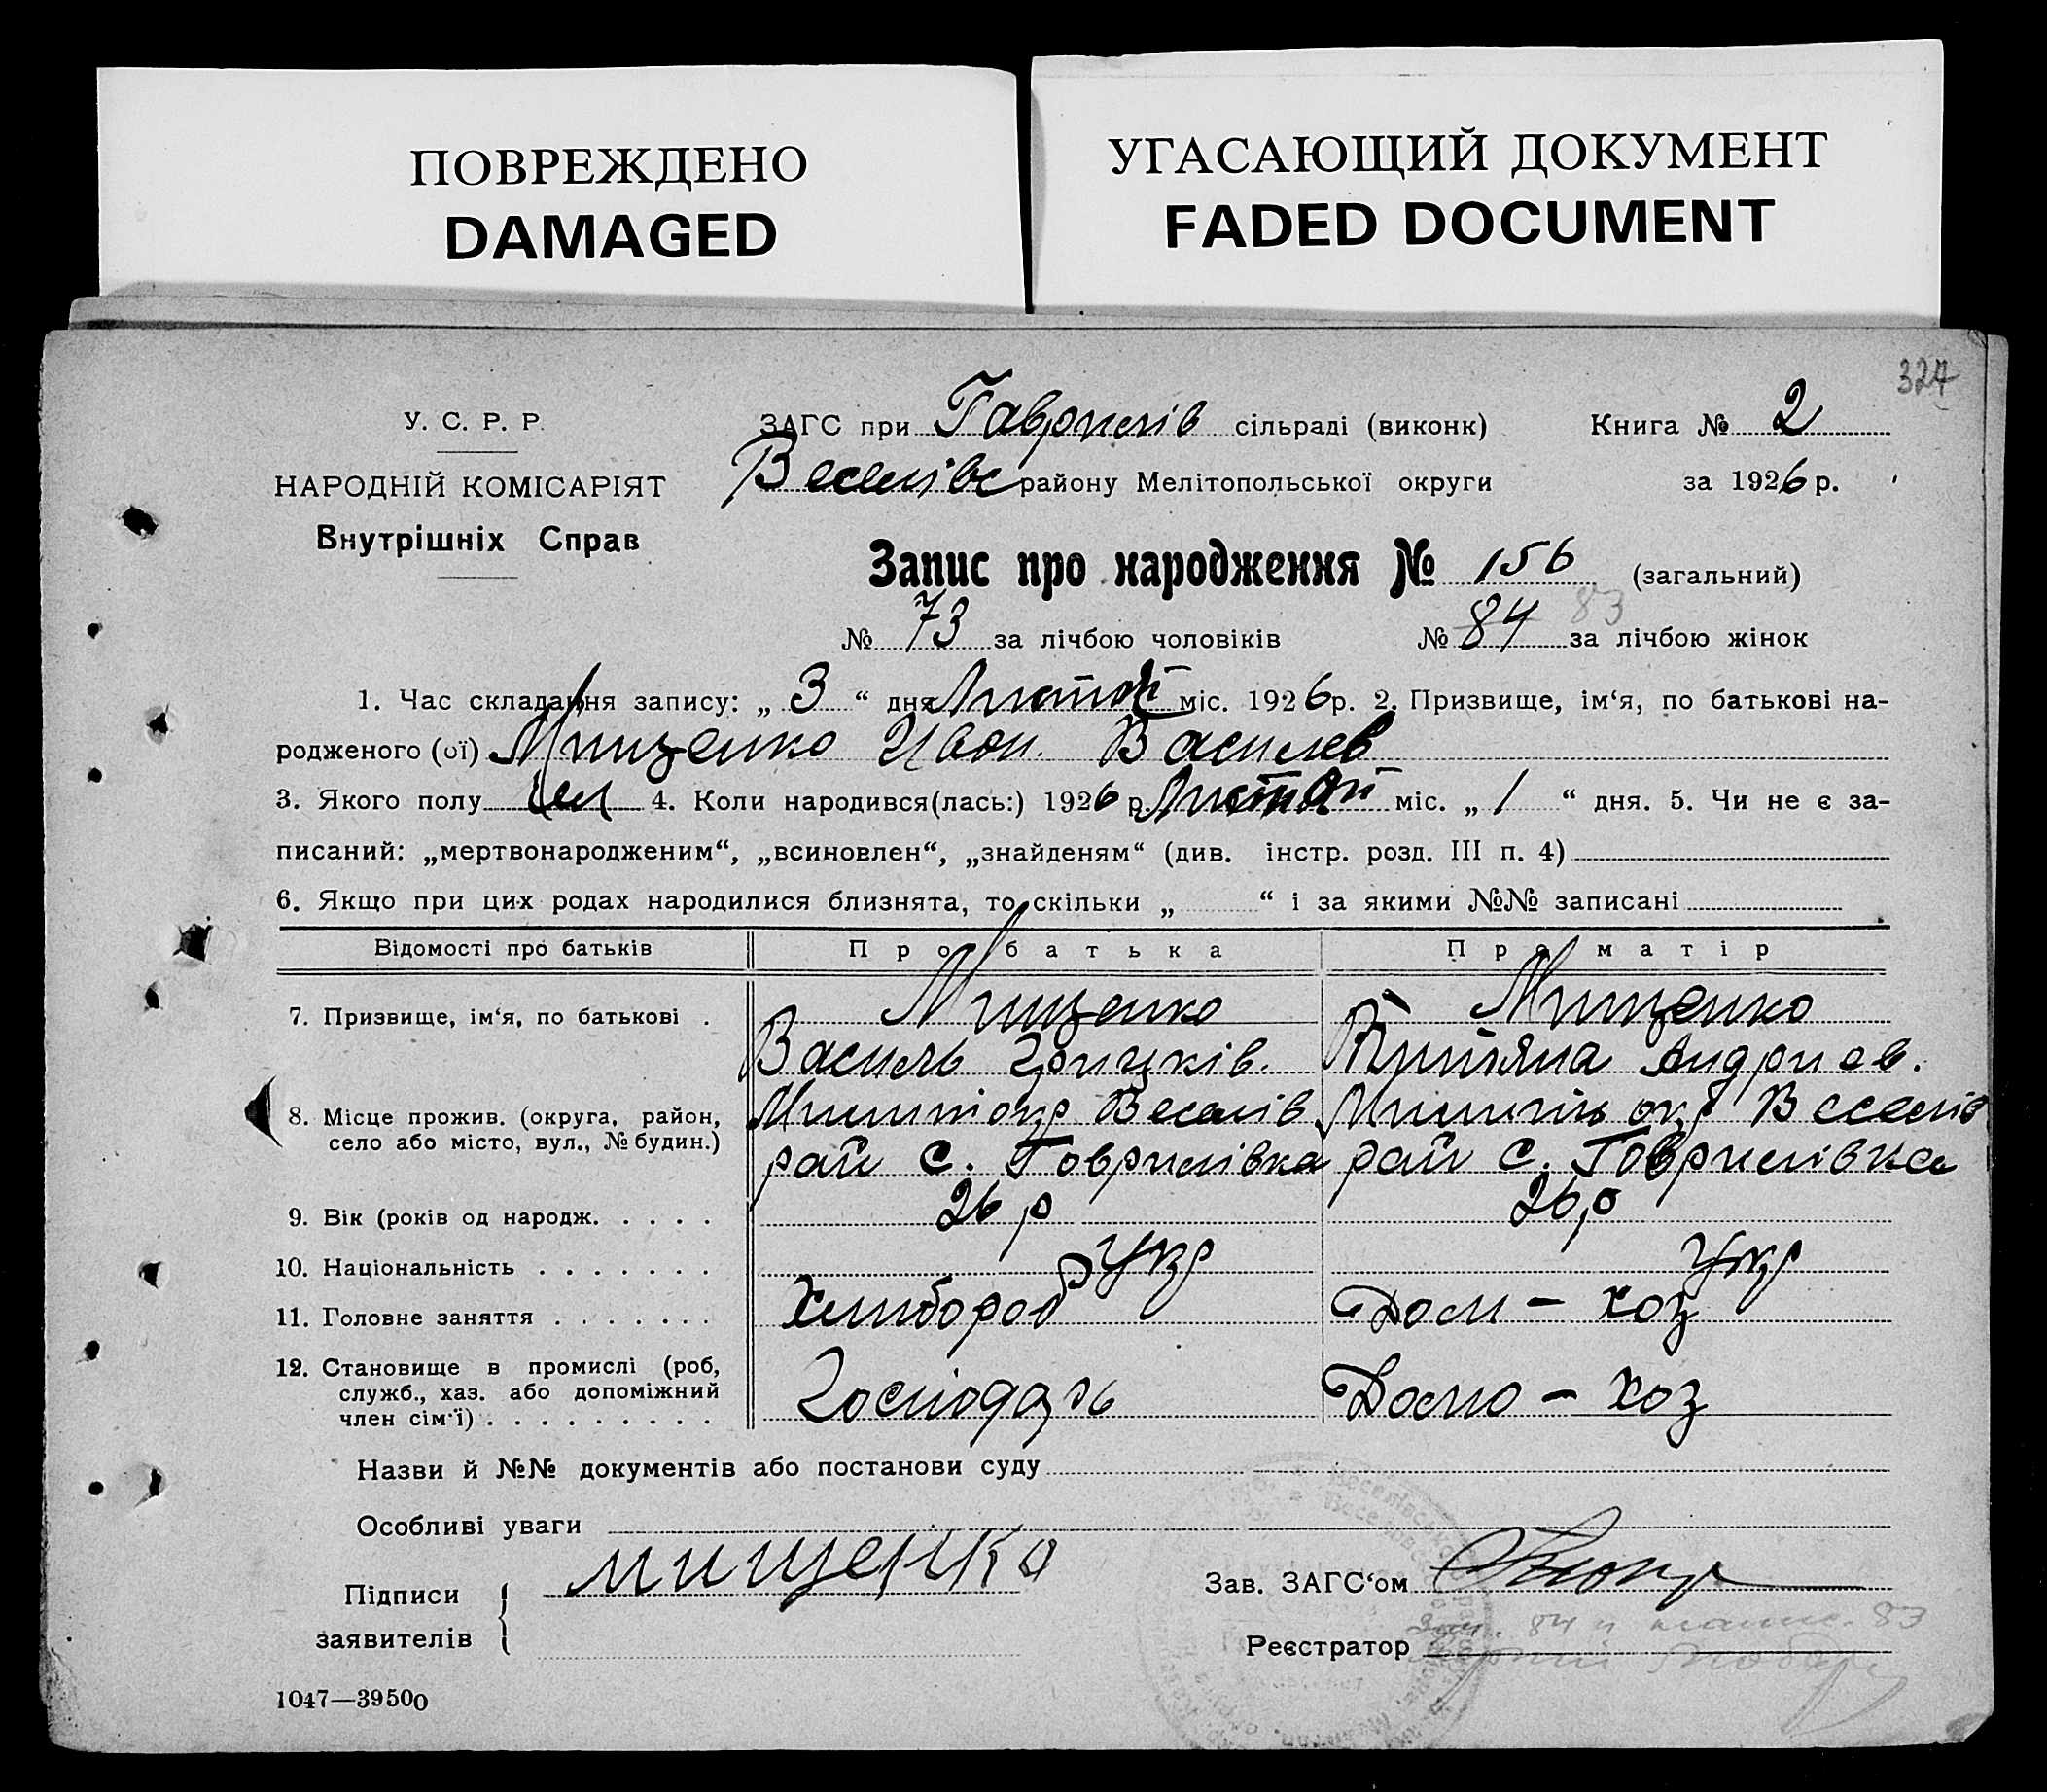 ПОВРЕЖДЕНО
DAMAGED
УГАСАЮЩИЙ ДОКУМЕНТ
FADED DOCUMENT
324
У. С. Р. Р.
НАРОДНІЙ КОМІСАРІЯТ
Внутрішніх Справ
ЗАГС при Гаврилів сільраді (виконк) Книга № 2
Веселівс району Мелітопольської округи за 1926 р.
Запис про народження № 156 (загальний)
№ 73 за лічбою чоловіків № 84 83 за лічбою жінок
1. Час складання запису: „ 3 “ дня міс. 1926 р. 2. Призвище, ім‘я, по батькові на-
родженого (ої) Мищенко Иван. Василев
3. Якого полу Чол 4. Коли народився(лась:) 1926 р. міс. „ 1 “ дня. 5. Чи не є за-
писаний: „мертвонародженим“, „всиновлен“, „знайденям“ (див. інстр. розд. III п. 4)
6. Якщо при цих родах народилися близнята, то скільки „ “ і за якими №№ записані
Відомості про батьків Про батька Про матір
7. Призвище, ім‘я, по батькові . Мищенко Мищенко
Василь Грицків. Андриев.
8. Місце прожив. (округа, район, село або місто, вул., № будин.) Веселів окр Веселів
рай с. Гаврилівка рай с. Гаврилівка
9. Вік (років од народж. . . . . 26 р 26 р
10. Національність . . . . . . . Укр Укр
11. Головне заняття . . . . . . . Хлибороб Дом - хоз
12. Становище в промислі (роб, служб., хаз. або допоміжний член сім‘ї) . . . . . . . . . Господарь Домо - хоз
Назви й №№ документів або постанови суду
Особливі уваги
Підписи заявителів мищенко
Зав. ЗАГС‘ом
84 83
Реєстратор
1047—39500